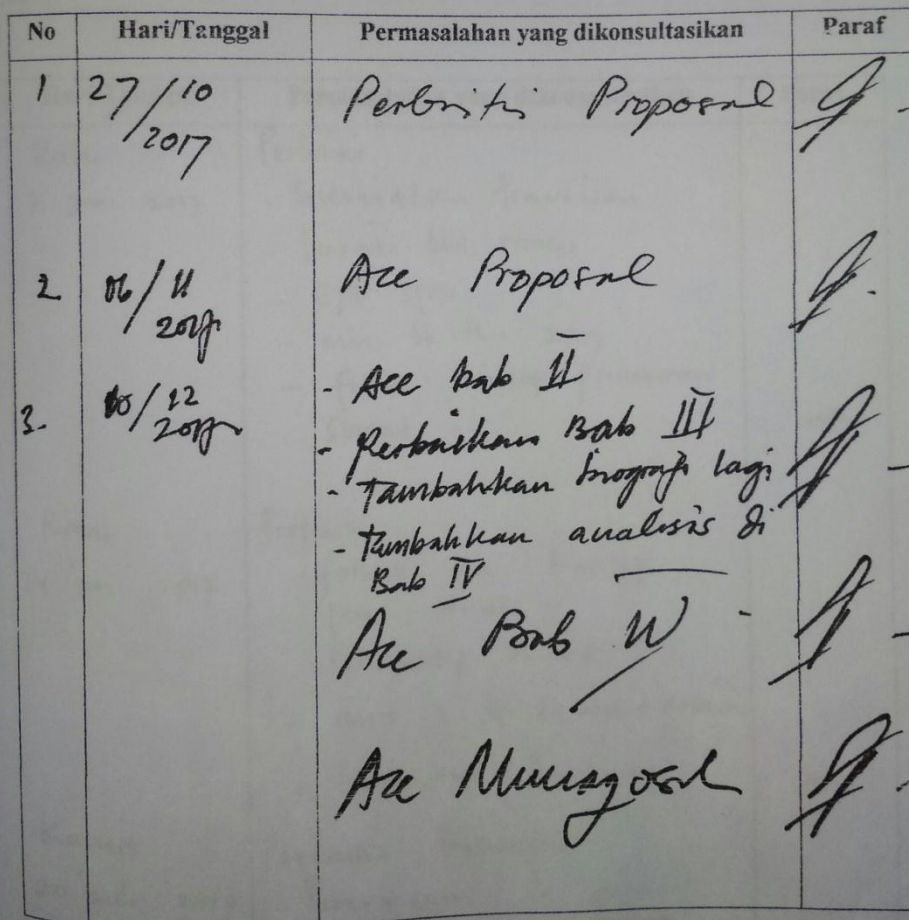 No Hari/Tanggal Permasalahan yang dikonsultasikan Paraf
1 27/10 Proposal
2017
2 06/11 Acc Proposal
2017
- Acc bab II
3. 10/12 - Perbaikan Bab III
2017
- Tambahkan biografi lagi
- Tambahkan analisis di
Bab IV
Acc Bab IV
Acc Munaqosah